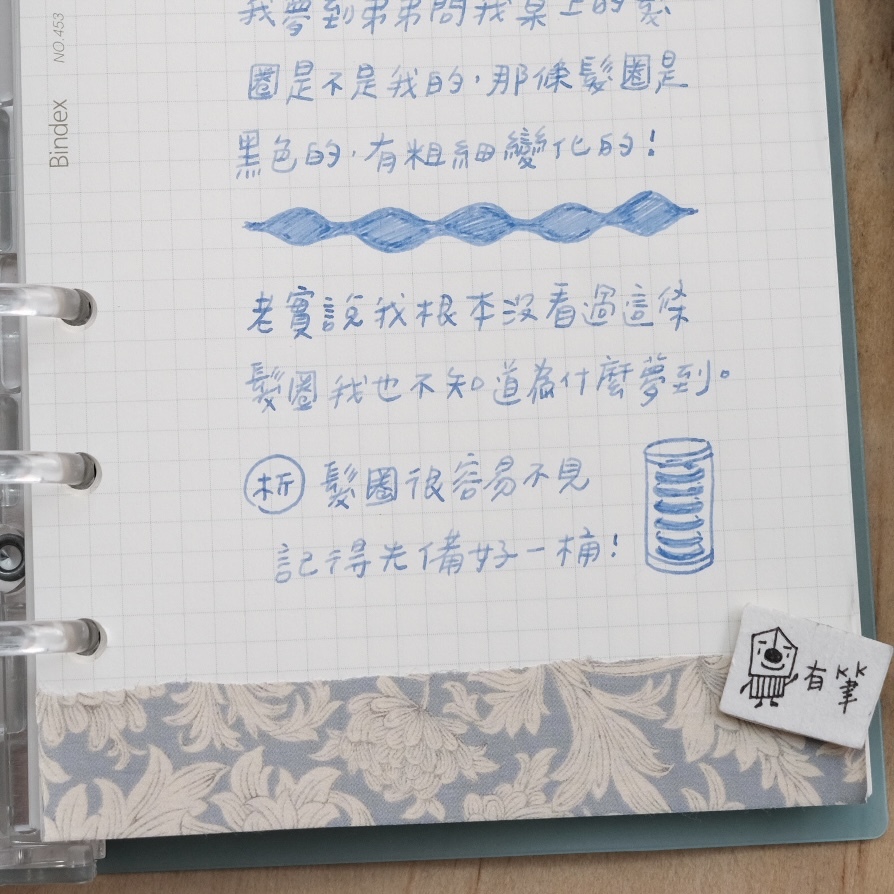 我夢到弟弟問我桌上的髮
圈是不是我的,那條髮圈是
黑色的,有粗細變化的!
老實說我根本沒看過這條
髮圈我也不知道為什麼夢到。
析 髮圈很容易不見
記得先備好一桶!
Bindex NO.453
有KK筆